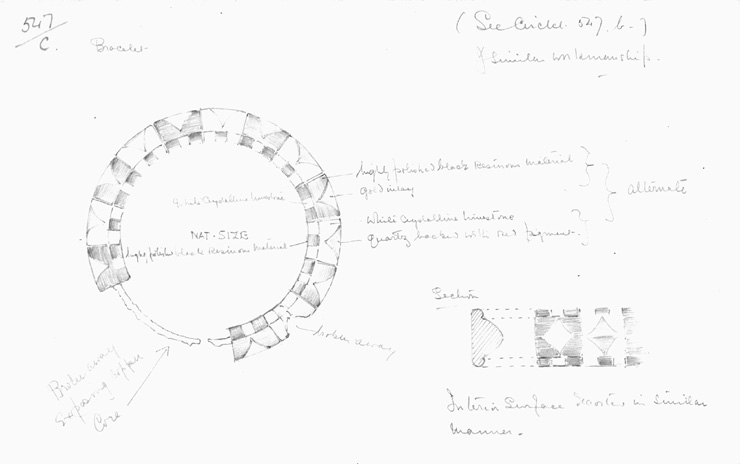 547
C.
Bracelet.
(See Circlet. 547, b.)
of similar workmanship.
highly polished black resinous material
gold inlay
alternate
White Crystalline limestone
White Crystalline limestone
quartz backed with red pigment.
NAT. SIZE
highly polished black resinous material
broken away
Broken away
exposing copper
Core
Section
Interior Surface treated in similar
manner.